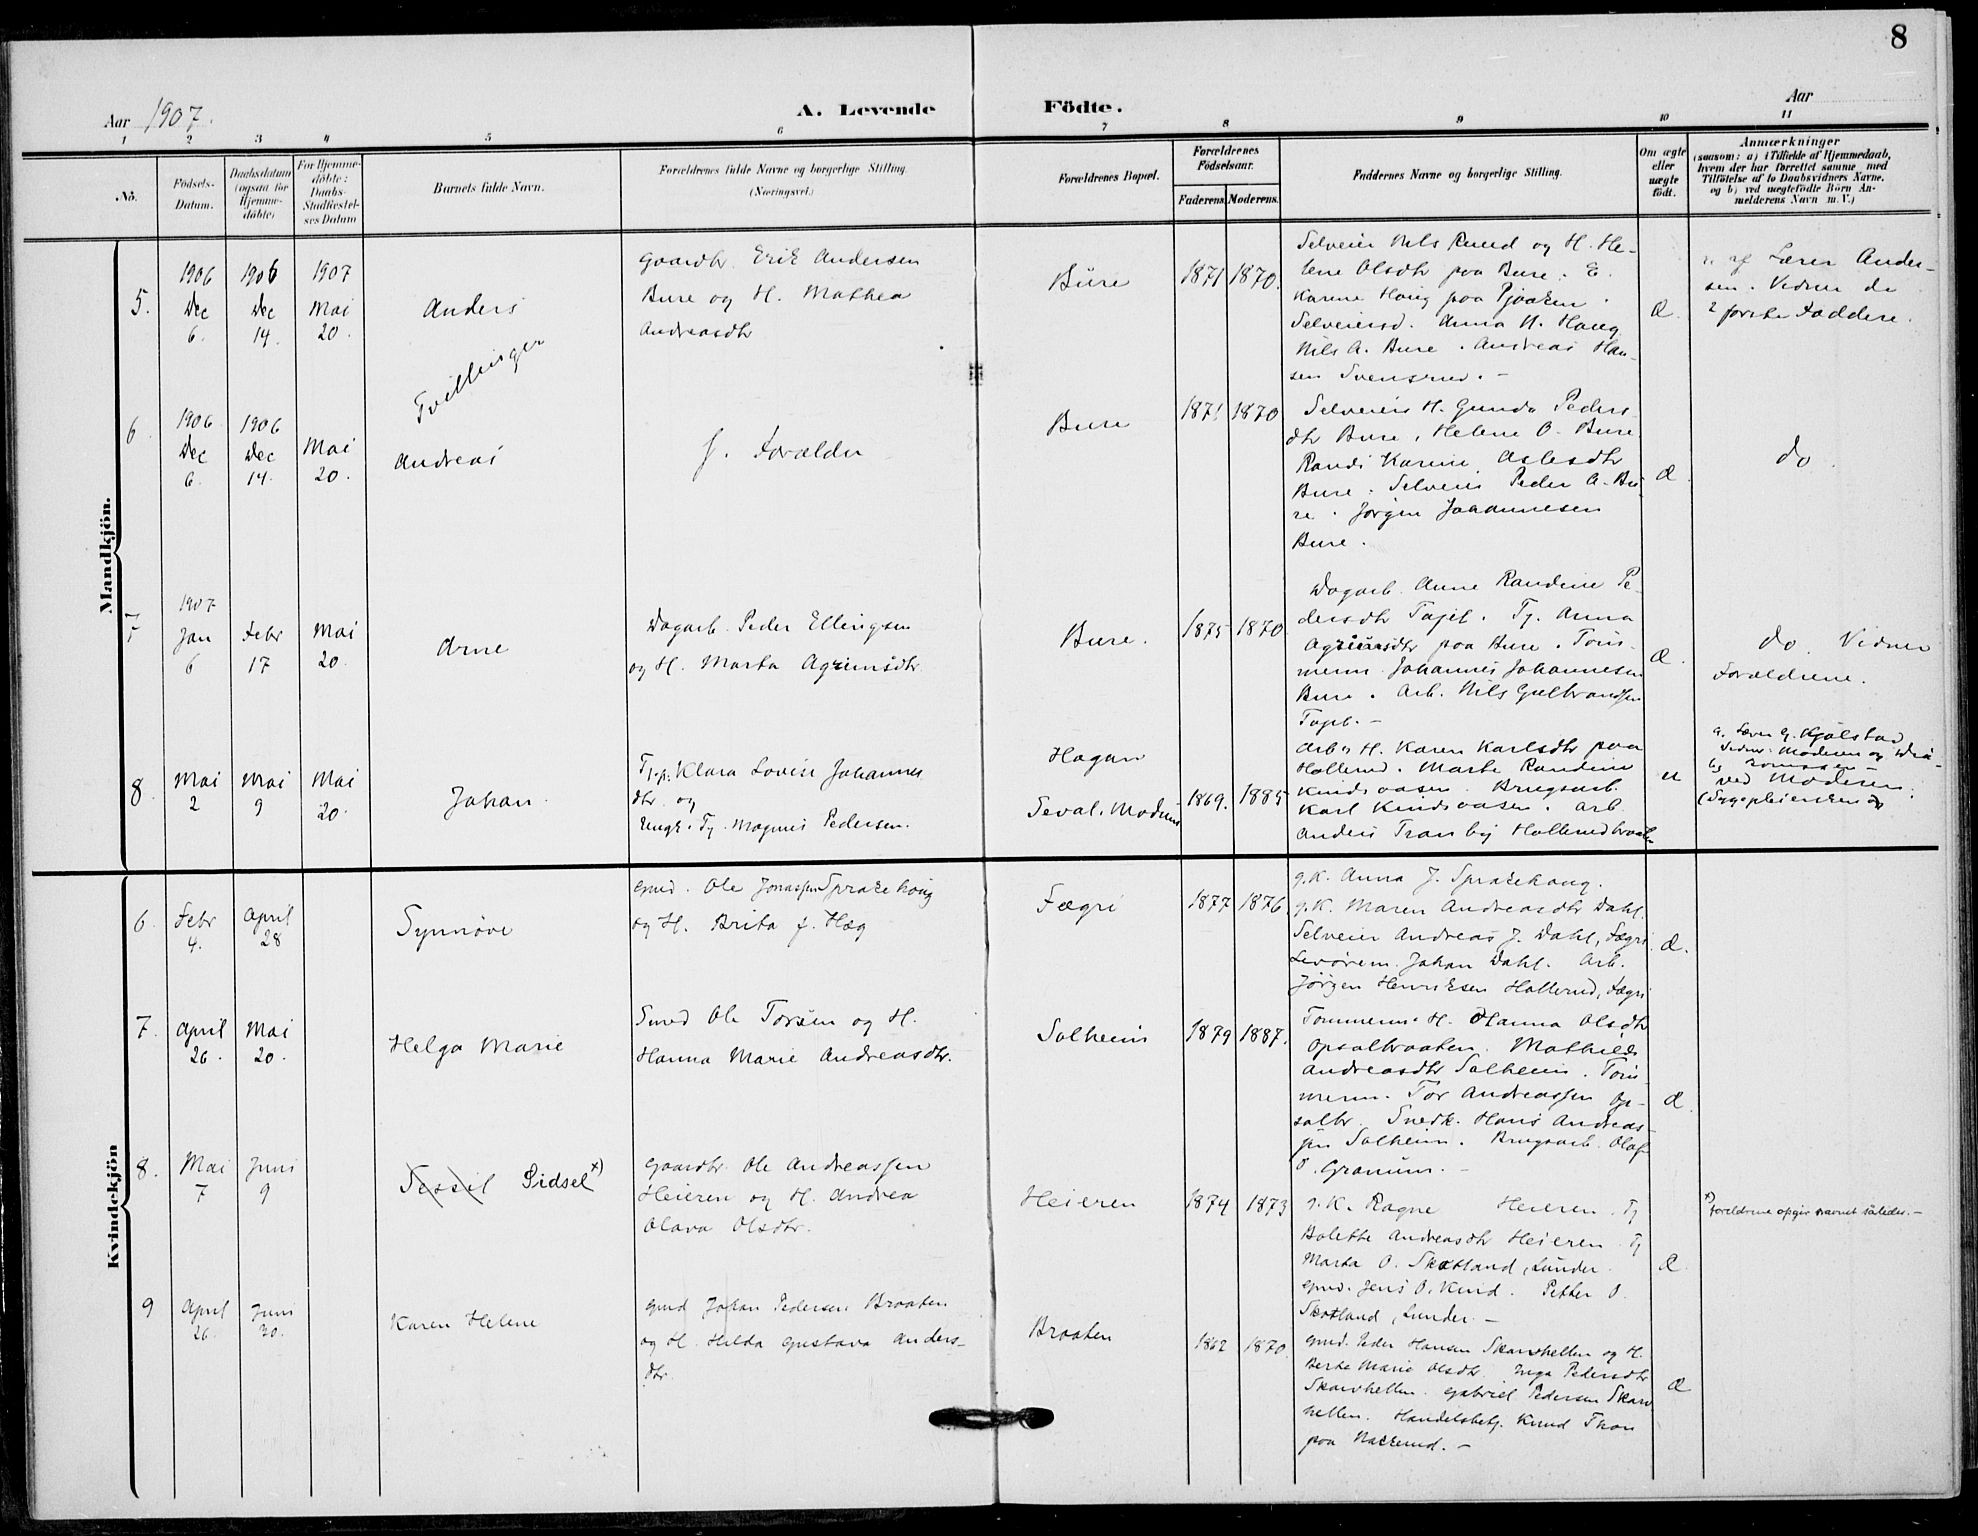 8
Aar 1907.
A. Levende Födte.
Aar
1 2 3 4 5 6 7 8 9 10 11
No.
Födsels-
Datum.
Daabsdatum
(ogsaa for
Hjemme-
döbte)
For Hjemme-
döbte:
Daabs-
Stadfæstel-
ses Datum
Barnets fulde Navn.
Forældrenes fulde Navne og borgerlige Stilling
(Næringsvei.)
Forældrenes Bopæl.
Forældrenes
Födselsaar.
Faderens. Moderens.
Faddernes Navne og borgerlige Stilling.
Om ægte
eller
uægte
födt.
Anmærkninger
(saasom: a) i Tilfælde af Hjemmedaab,
hvem der har forrettet samme, med
Tilföielse af to Daabsvidners Navne,
og b) ved uægtefödte Börn An-
melderens Navn m.V.)
Mandkjön.
5.
1906
Dec
6.
1906
Dec
14.
1907
Mai
20.
Anders
Gaardbr. Erik Andersen
Bure og H. Mathea
Andreasdtr
Bure
1871 1870.
Selveier Nils Ruud og H. He-
lene Olsdtr paa Bure. E.
Karine Haug paa
Selveiersd. Anna N. Haug
Nils A. Bure. Andreas Han-
sen Svensrud. -
Æ.
af Lærer Ander-
sen. Vidner de
2 første Faddere.
Tvillinger
6
1906
Dec
6.
1906
Dec
14.
Mai
20.
Andreas
f. Forældre
Bure
1871. 1870
Selveiers H. Gunda Peders
dtr Bure, Helene O. Bure
Randi Karine Aslesdtr
Bure. Selveier Peder A. Bu-
re. Jørgen Johannesen
Bure.
Æ.
do.
7
1907
Jan
6
Febr
17
Mai
20.
Arne
Dagarb. Peder Ellingsen
og H. Marta Agrimsdtr.
Bure.
1875 1870
Dagarb. Anne Randine Pe-
dersdtr Tajet. Tj. Anna
Agrimsdtr paa Bure. Töm-
merm. Johannes Johannesen
Bure. Arb. Nils Gulbrandsen
Tajet. -
Æ.
do. Vidner
Forældrene.
8.
Mai
2
Mai
9
Mai
20.
Johan.
Tj.p. Klara Lovise Johannes
dtr. og
Ungk. Tj. Magnus Pedersen.
Hagan
Seval. Modum
1869. 1885
Arb's H. Karen Karlsdtr paa
Hollerud. Marte Randine
Kindsvasen. Brugsarb.
Karl Kindsvasen. Arb.
Anders Tranby Hollerudbraaten
u
a. Lærer G. Kjølstad
Vidner: Moderen og
b) ved Moderen.
Kvindekjön
6.
Febr
4.
April
28
Synnøve
Gmd. Ole Jonassen Sprakehaug
og H. Brita f. Hæg
Fægri
1877 1876.
g.K. Anna J. Sprakehaug.
g.K. Maren Andreasdtr Dahl.
Selveier Andreas J. Dahl, Fægri
Johan Dahl. Arb.
Jørgen Henriksen Hollerud, Fægri
Æ.
7.
April
26.
Mai
20.
Helga Marie
Smed Ole Torsen og H.
Hanna Marie Andreasdtr.
Solheim
1879 1887.
Tømmerm. H. Hanna Olsdtr
Opsalbraaten. Mathilde
Andreasdtr Solheim. Töm-
merm. Tor Andreassen Op-
salbr. Snedk. Hans Andreas-
sen Solheim. Brugsarb. Olaf
O. Granum. -
Æ.
8.
Mai
7
Juni
9
Sissil Sidsel x)
Gaardbr. Ole Andreassen
Heieren og H. Andrea
Olava Olsdtr.
Heieren
1874 1873
g.K. Ragne Heieren. Tj
Bolette Andreasdtr Heieren. Tj
Marta O. Skotland, Lunder.
Gmd. Jens O. Kind. Petter O.
Skotland, Lunder. -
Æ.
x) foreldrene opgir navnet således. -
9
April
26.
Juni
30.
Karen Helene
Gmd Johan Pedersen Braaten
og H. Hilda Gustava Anders-
dtr.
Braaten
1862 1870.
Gmd. Peder Hansen Skarshellen og H.
Berte Marie Olsdtr. Inga Pedersdtr
Skarshellen. Gabriel Pedersen Skars
hellen. Handelsbetj. Knud Thon
paa Nakkerud. -
Æ